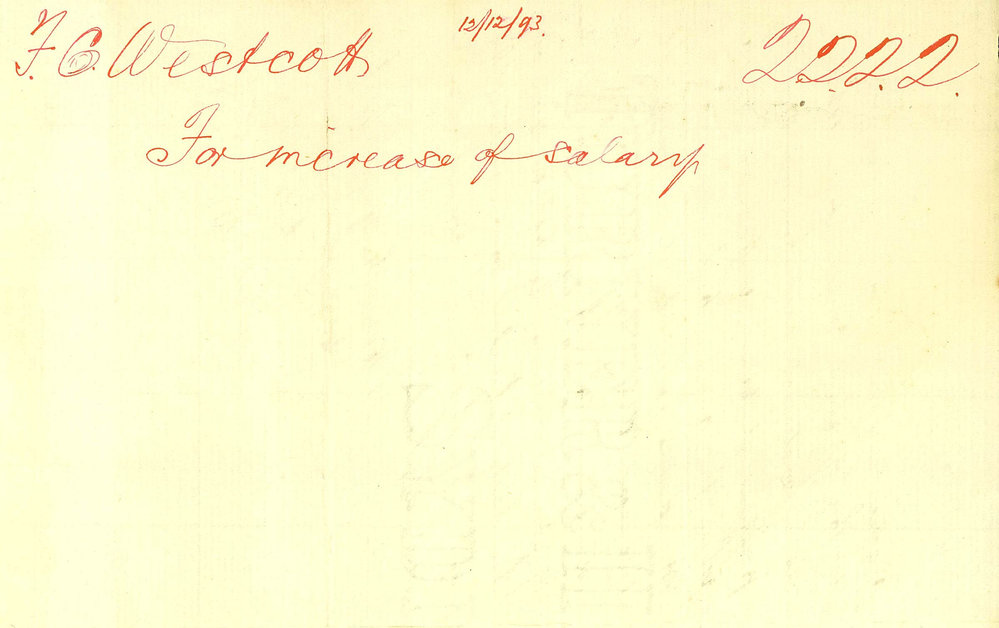 F. C. Westcott 12/12/93. 2222.
For increase of salary